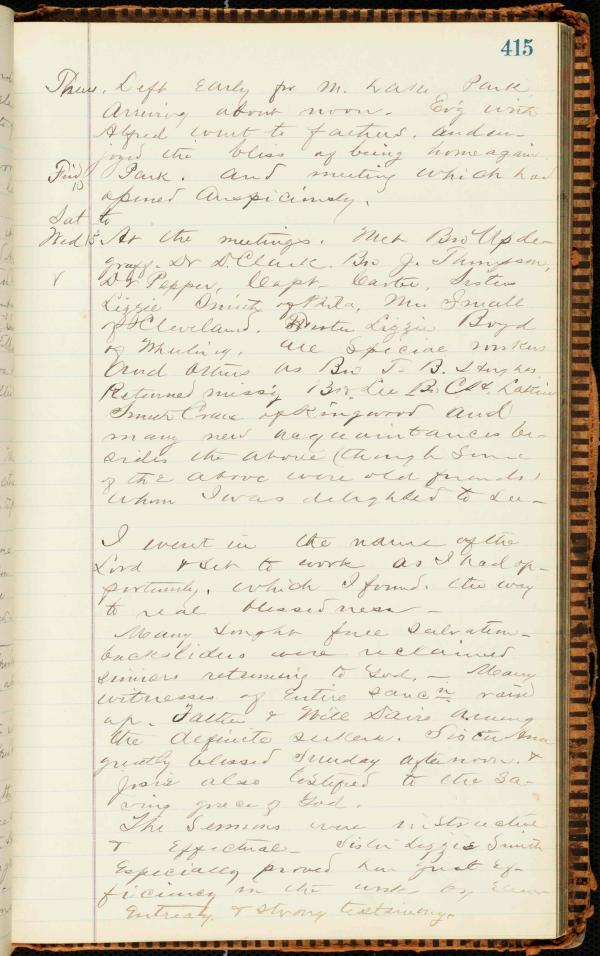 415
Thurs. Left Early for M. Lake Park
Arriving about noon. Ev'g with
Alfred went to fathers. and en-
joyed the bliss of being home again
Frid 10 Park. and meeting which had
opened Auspiciously.
Sat to
Wed 15 At the meetings. Met Bro Upde-
graff. Dr D. Clark. Bro J. Thompson,
Dr Pepper, Capt. Carter, Sister
Lizzie Smith of Phila, Mrs Small
of Cleveland. Sister Lizzie Boyd
of Wheeling. are Special workers
And others as Bro T. B. Hughes
Returned miss'y Bro Lee B.
Smith Crane of Kingwood and
many new acquaintances be-
sides the above (though Some
of the above were old friends)
whom I was delighted to see -
I went in the name of the
Lord & Set to work as I had op-
portunity, which I found. the way
to real blessedness -
Many sought free salvation -
backsliders were reclaimed
sinners returning to God. - Many
witnesses of Entire sancn raised
up. Father & Will Davis Among
the definite seekers. Sister Ann
greatly blessed Sunday afternoon. &
Josie also testified to the Sa-
ving grace of God.
The Sermons were instructive
& Effectual - Sister Lizzie Smith
Especially proved her great Ef-
ficiency in the work by
Entreaty & strong testimony.